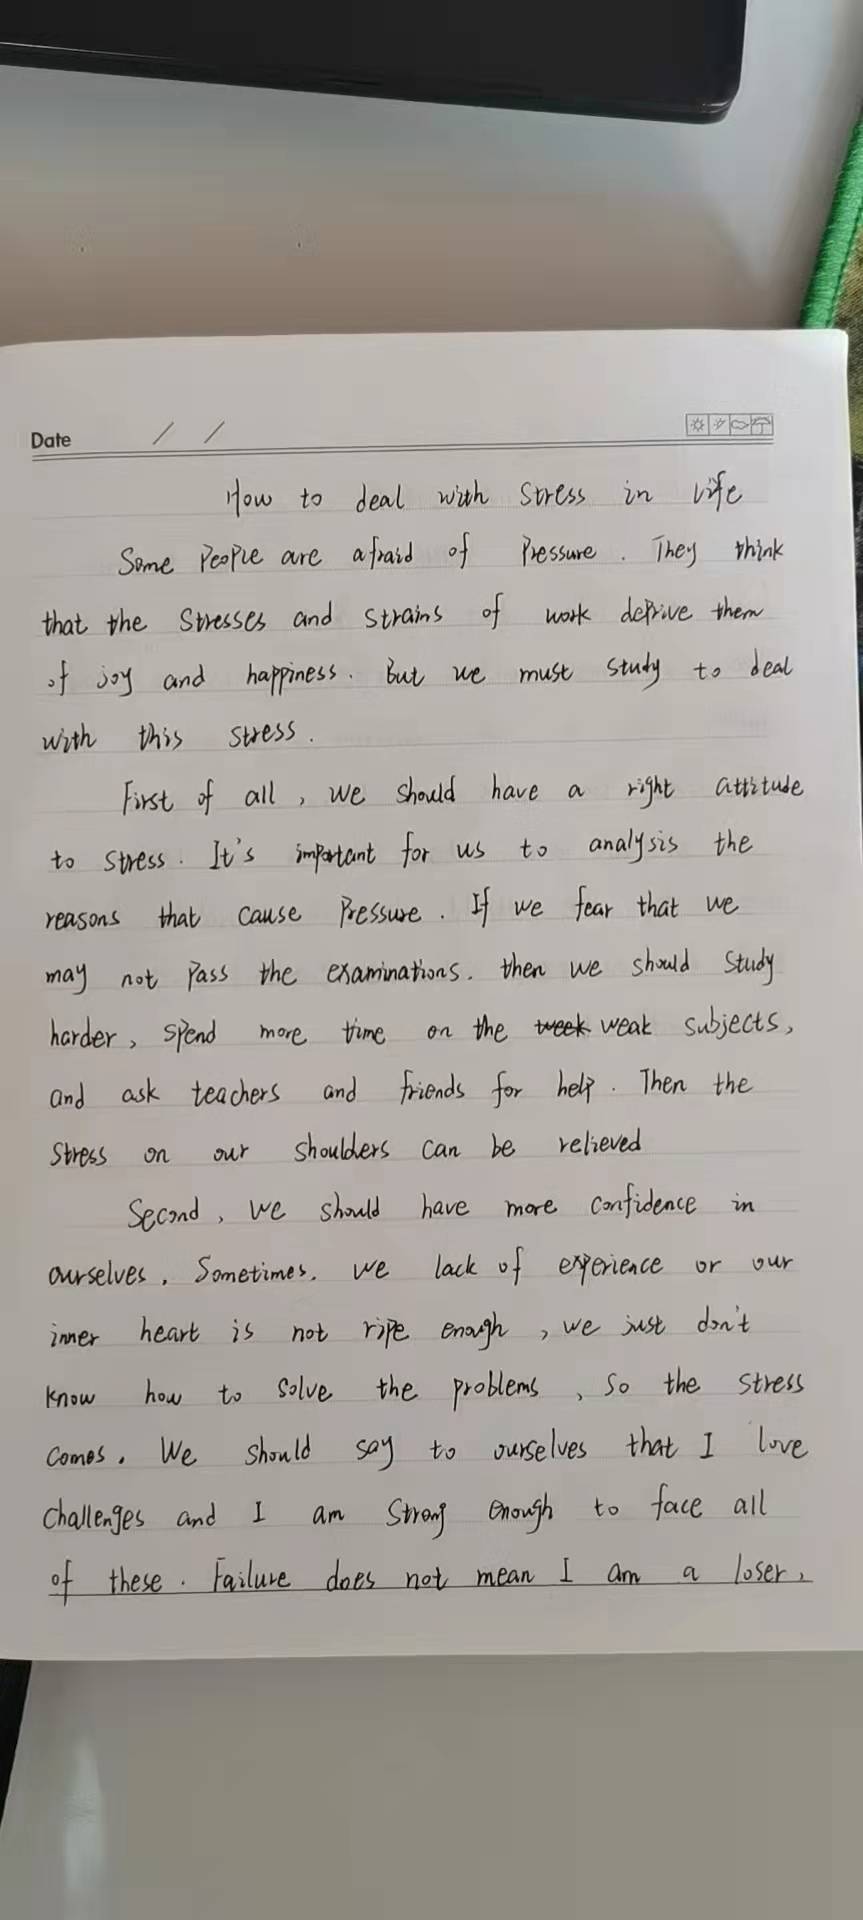 Date / /
How to deal with stress in life
Some people are afraid of pressure. They think
that the stresses and strains of work deprive them
of joy and happiness. But we must study to deal
with this stress.
First of all, we should have a right attitude
to stress. It's important for us to analysis the
reasons that cause pressure. If we fear that we
may not pass the examinations. then we should study
harder, spend more time on the week weak subjects,
and ask teachers and friends for help. Then the
stress on our shoulders can be relieved
Second, we should have more confidence in
ourselves. Sometimes. we lack of experience or our
inner heart is not ripe enough, we just don't
know how to solve the problems, so the stress
comes. We should say to ourselves that I love
challenges and I am strong enough to face all
of these. Failure does not mean I am a loser,